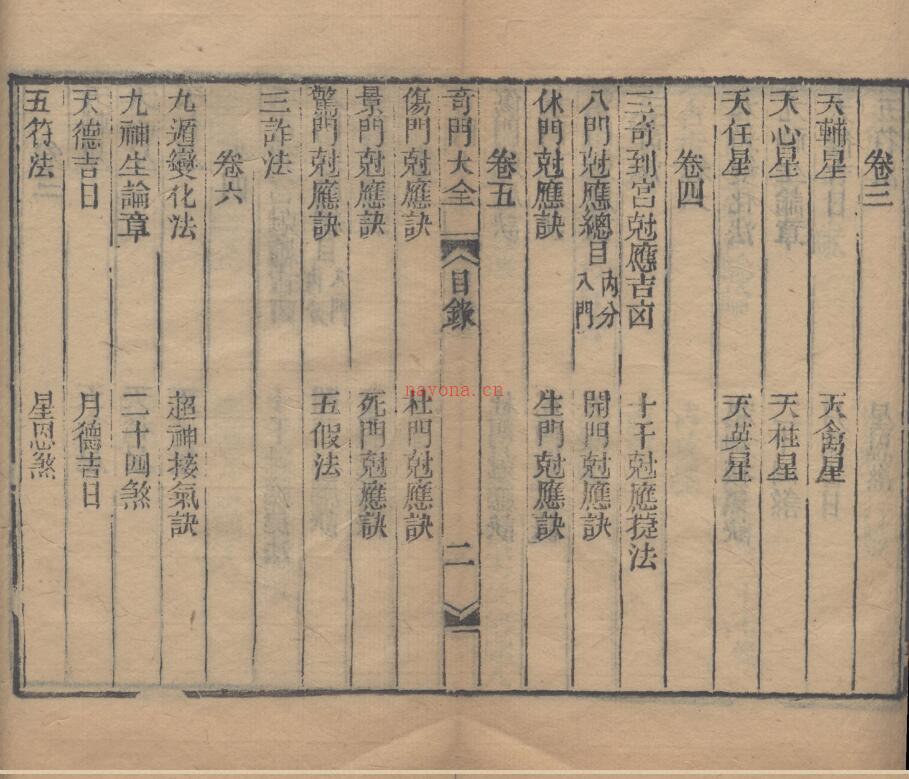 卷三
天輔星 天禽星
天心星 天柱星
天任星 天英星
卷四
三奇到宮尅應吉凶 十干尅應㨗法
八門尅應總目 內分八門 開門尅應訣
休門尅應訣 生門尅應訣
卷五
奇門大全 目錄 二
傷門尅應訣 杜門尅應訣
景門尅應訣 死門尅應訣
驚門尅應訣 五假法
三詐法
卷六
九遁變化法 超神接氣訣
九神生論章 二十四煞
天德吉日 月德吉日
五符法 星恩煞
nayona.cn